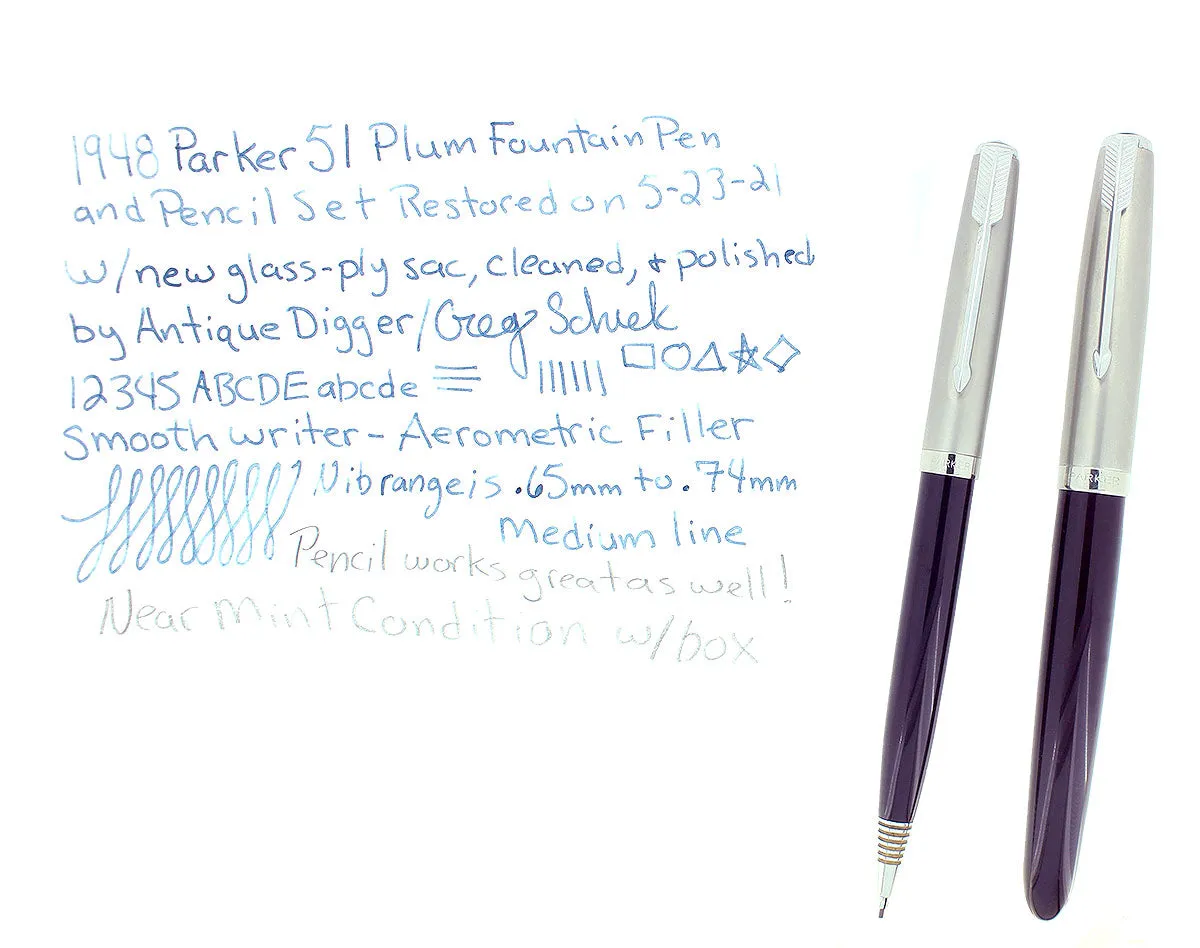 1948 Parker 51 Plum Fountain Pen
and Pencil Set Restored on 5-23-21
w/new glass-ply sac, cleaned, & polished
by Antique Digger/Greg Schuek
12345 ABCDE abcde
Smooth writer - Aerometric Filler
Nib range is .65mm to .74mm
Medium line
Pencil works great as well!
Near Mint Condition w/box
PARKER
PARKER